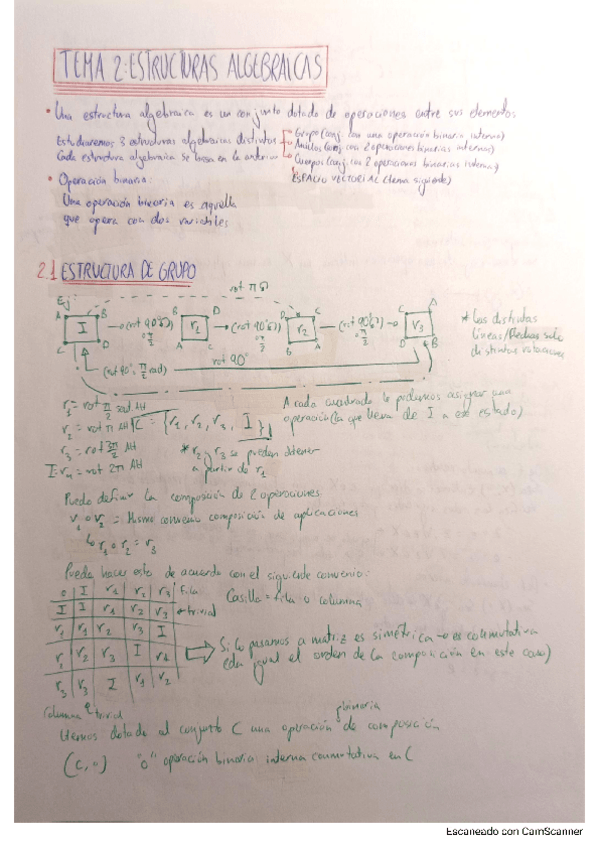 TEMA 2: ESTRUCTURAS ALGEBRAICAS
• Una estructura algebraica es un conjunto dotado de operaciones entre sus elementos.
Estudiaremos 3 estructuras algebraicas distintas
Cada estructura algebraica se basa en la anterior
Grupo (conj. con una operación binaria interna)
Anillos (conj con 2 operaciones binarias internas)
Cuerpos (conj con 2 operaciones binarias internas)
ESPACIO VECTORIAL (tema siguiente)
• Operación binaria:
Una operación binaria es aquella
que opera con dos variables
2.1 ESTRUCTURA DE GRUPO
rot π
Ej:
A B
I
C D
(rot 90º
B D
A C
(rot 90º
D C
r2
B A
(rot 90º
C A
r3
D B
* Las distintas
líneas/flechas son
distintas rotaciones
rot 90º
(rot 90º, π/2 rad)
r1 = rot π/2 rad AH
r2 = rot π AH
C = {r1, r2, r3, I}
r3 = rot 3π/2 AH
I = r4 = rot 2π AH
* r2 y r3 se pueden obtener
a partir de r1
A cada cuadrado le podemos asignar una
operación (la que lleva de I a ese estado)
Puedo definir la composición de 2 operaciones
r1 o r2 = Mismo convenio composición de aplicaciones
↳ r1 o r2 = r3
Puedo hacer esto de acuerdo con el siguiente convenio:
Casilla = fila o columna
o I r1 r2 r3 Fila
I I r1 r2 r3 trivial
r1 r1 r2 r3 I
r2 r3 I r1
r3 r3 I r1 r2
Si lo pasamos a matriz es simétrica → es conmutativa
(da igual el orden de la composición en este caso)
Columna trivial
Hemos dotado al conjunto C una operación de composición
binaria
(C, o) "o" operación binaria interna conmutativa en C
Escaneado con CamScanner